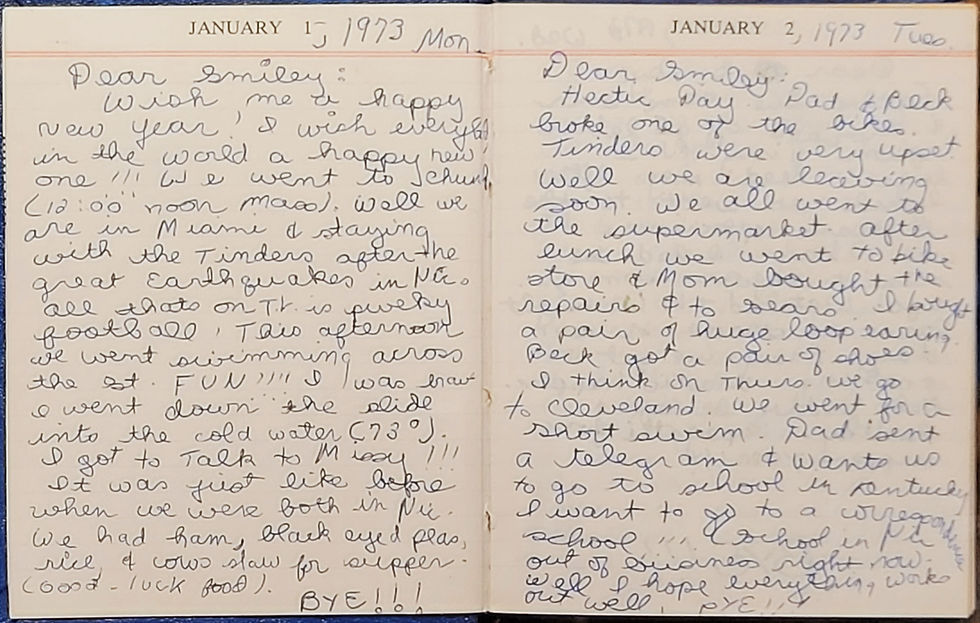 JANUARY 1, 1973 Mon.
Dear Smiley:
Wish me a happy
new year! I wish everybod
in the world a happy new
one!!! We went to church
(12:00 noon mass). Well we
are in Miami & staying
with the Tinders after the
great Earthquakes in Nic.
all thats on T.V. is pweky
football! This afternoon
we went swimming across
the st. FUN!!!! I was brave
I went down the slide
into the cold water (73°).
I got to Talk to Missy!!!
It was just like before
when we were both in Nic.
We had ham, black eyed peas,
rice, & cows slaw for supper.
(Good-luck food).
BYE!!!
JANUARY 2, 1973 Tues.
Dear Smiley:
Hectic Day. Dad & Beck
broke one of the bikes.
Tinders were very upset.
Well we are leaving
soon. We all went to
the supermarket. after
lunch we went to bike
store & Mom bought the
repairs & to sears. I bought
a pair of huge loop earing.
Beck got a pair of shoes.
I think on Thurs. we go
to Cleveland. We went for a
short swim. Dad sent
a telegram & wants us
to go to school in Kentucky
I want to go to a correspondence
school!!! (School in Nic
out of business right now.
well I hope everything works
out well. BYE!!!